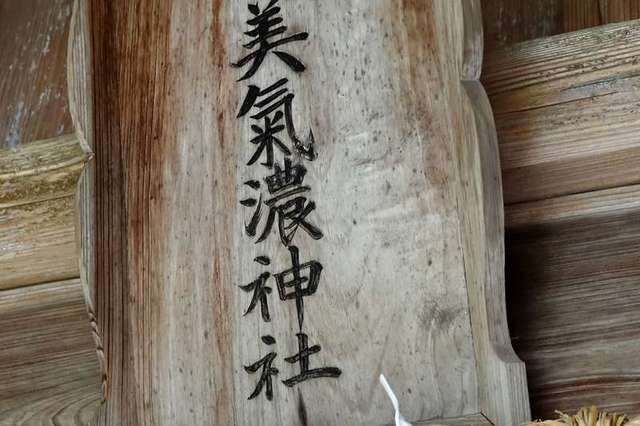 美氣濃神社